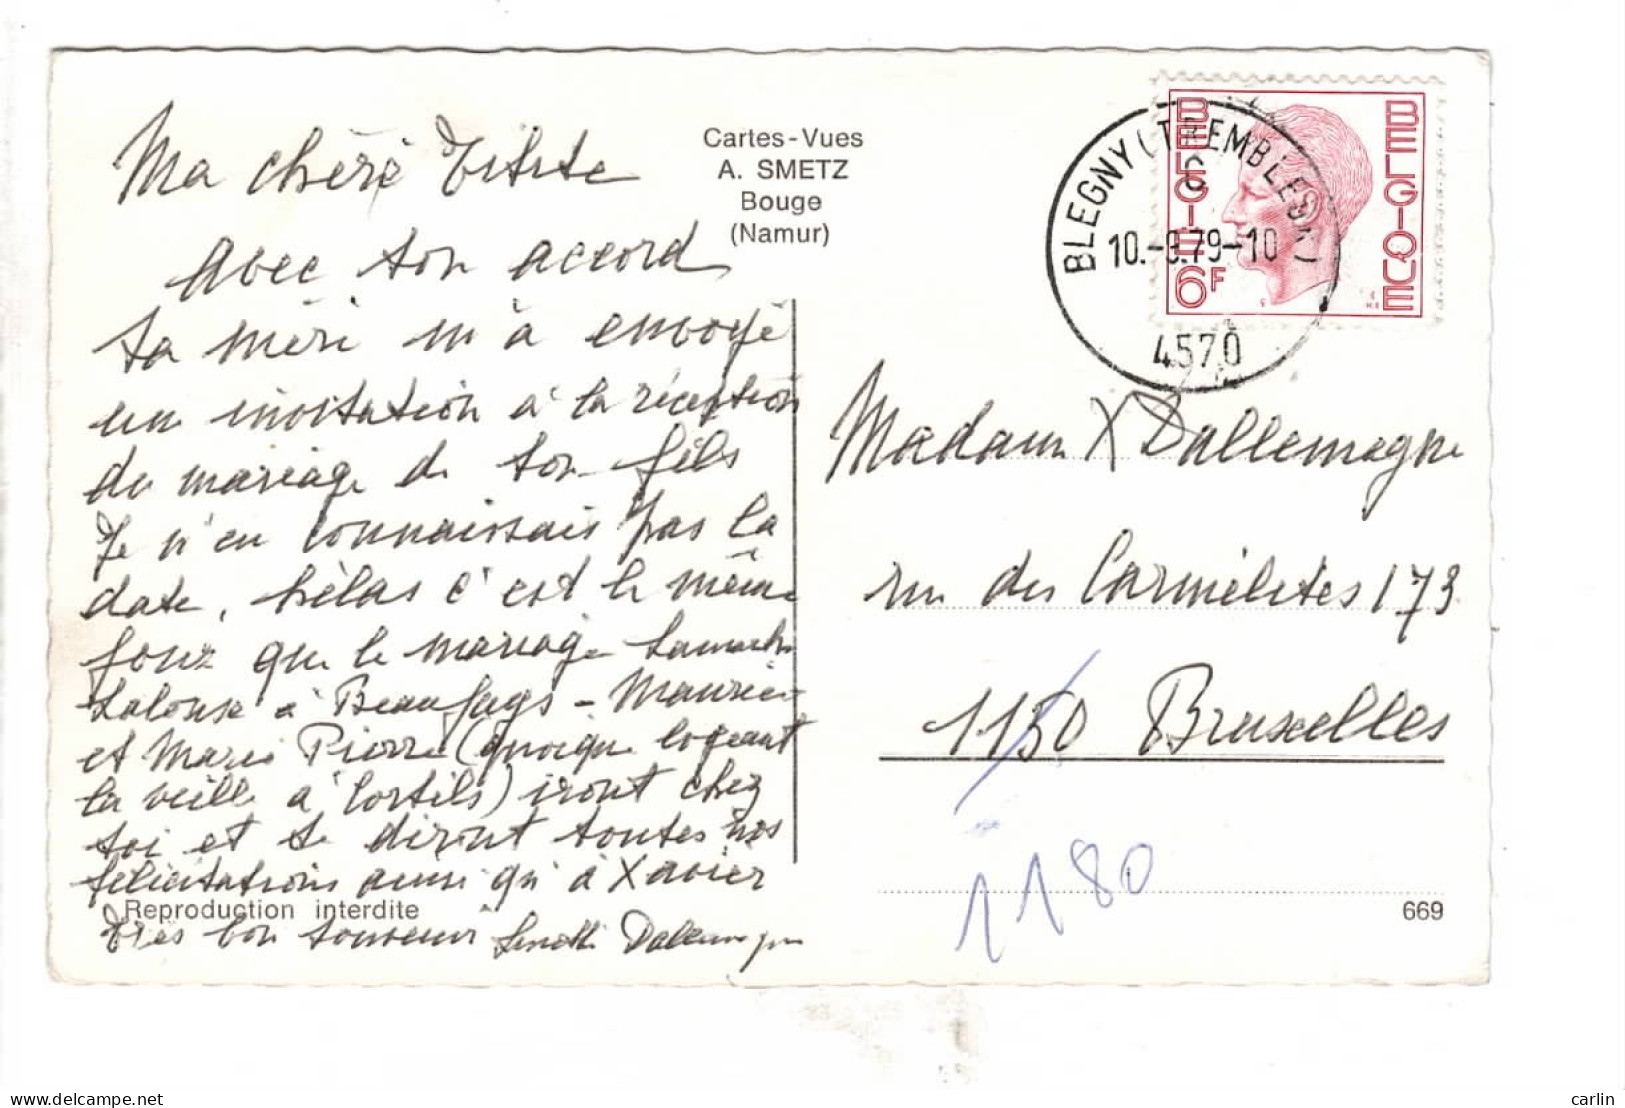 Cartes-Vues
A. SMETZ
Bouge
(Namur)
Ma chère Titite
Avec ton accord
ta mère m'a envoyé
un invitation à la réception
du mariage de ton fils
Je n'en connaissais pas la
date, hélas c'est le même
jour que le mariage
à Beaufays - Maurice
et Marie Pierre (quoique logeant
la veille à Cortils) iront chez
toi et te diront toutes nos
félicitations ainsi qu'à Xavier
Reproduction interdite
très bon souvenir Dallemagne
BELGIE BELGIQUE
6F
BLEGNY (TREMBLEUR)
10.-9.79-10
4570
Madame X Dallemagne
rue des Carmélites 173
1150 Bruxelles
1180
669
carlin